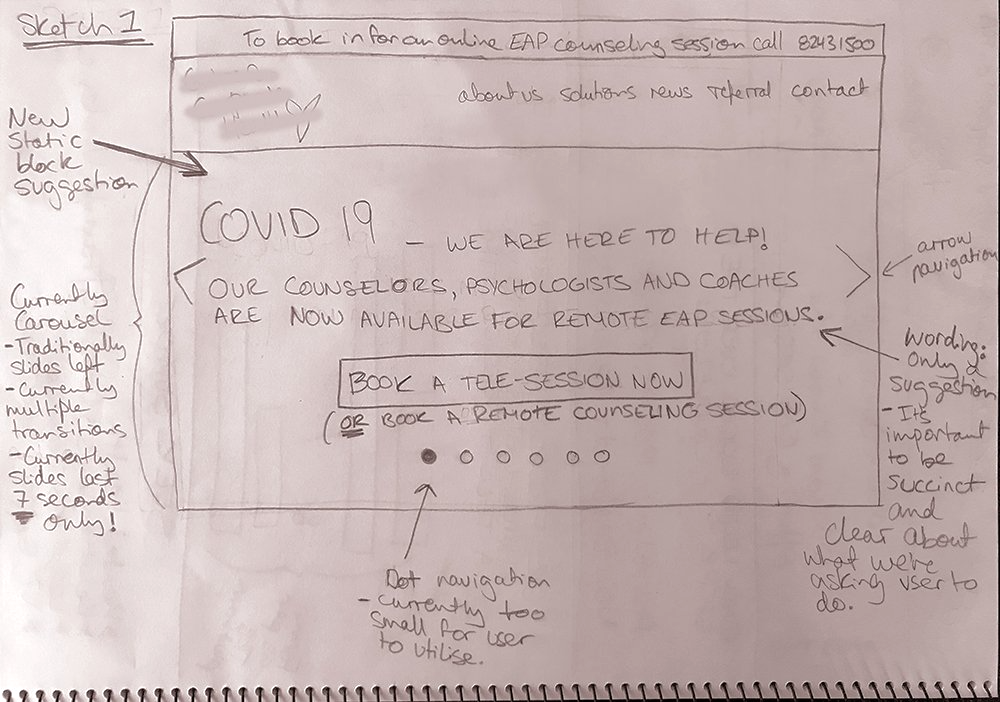 Sketch 1
To book in for an online EAP counseling session call 82431500
about us solutions news referral contact
New
Static
block
suggestion
COVID 19 - WE ARE HERE TO HELP!
OUR COUNSELORS, PSYCHOLOGISTS AND COACHES
ARE NOW AVAILABLE FOR REMOTE EAP SESSIONS.
BOOK A TELE-SESSION NOW
(OR BOOK A REMOTE COUNSELING SESSION)
arrow
navigation
Currently
Carousel
- Traditionally
slides left
- Currently
multiple
transitions
- Currently
slides last
7 seconds
only!
wording:
only a
suggestion
- It's
important
to be
succinct
and
clear about
what we're
asking user to
do.
Dot navigation
- currently too
small for user
to utilise.